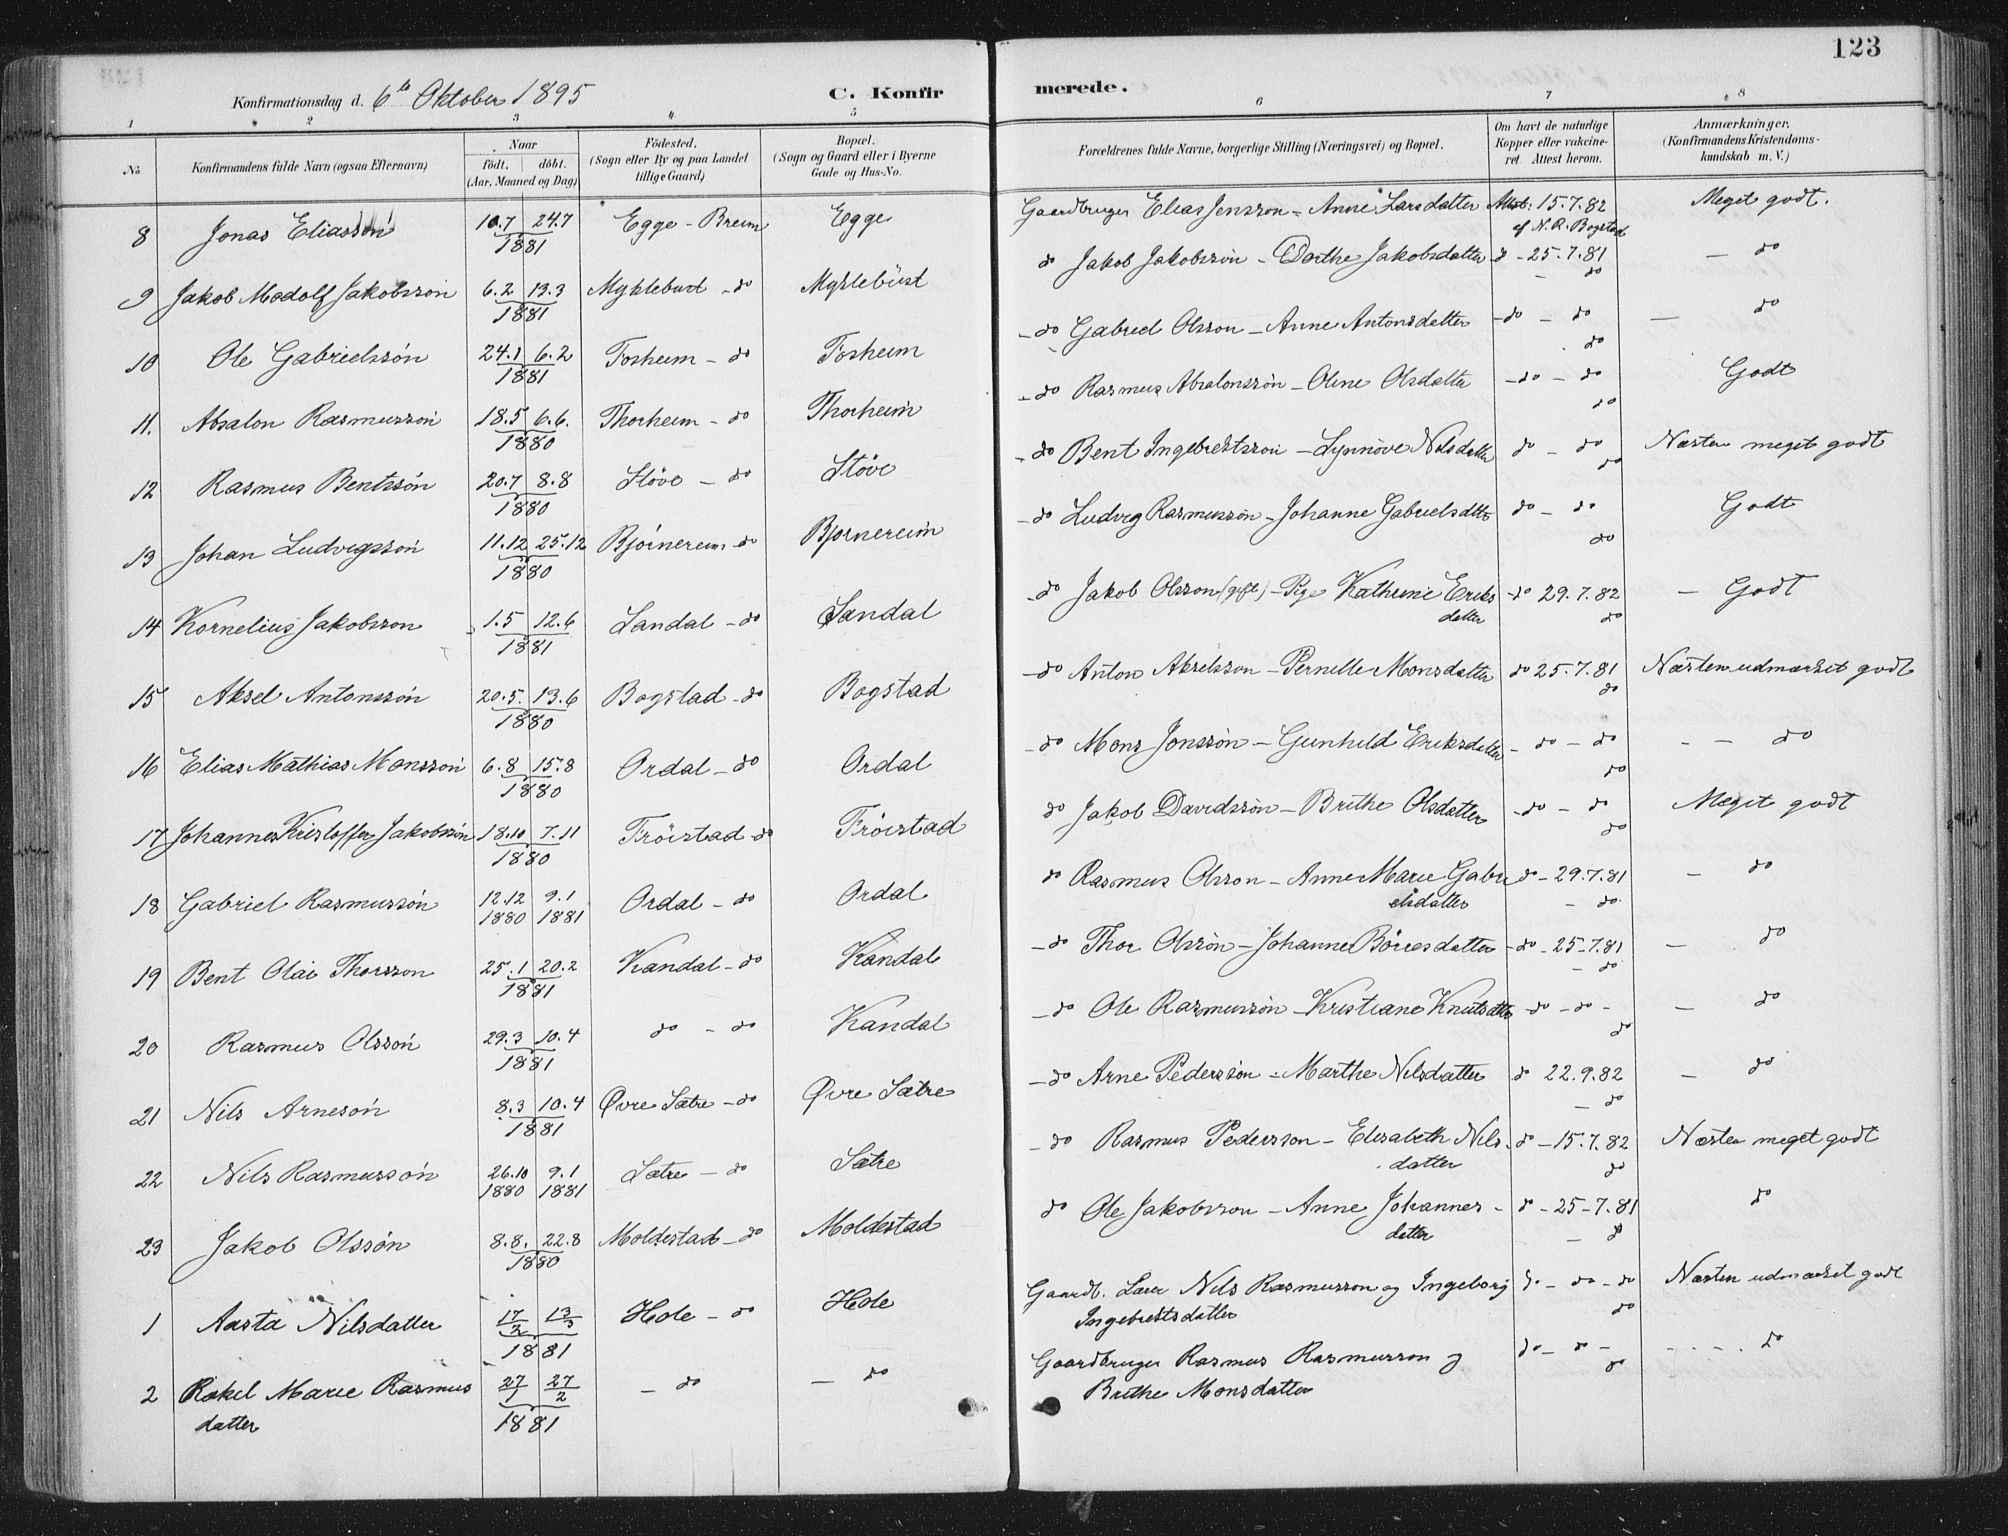 123
Konfirmationsdag d. 6te Oktober 1895 C. Konfirmerede.
1 2 3 4 5 6 7 8
No. Konfirmandens fulde Navn (ogsaa Efternavn) Naar födt. döbt. (Aar, Maaned og Dag) Födested. (Sogn eller By og paa Landet tillige Gaard) Bopæl. (Sogn og Gaard eller i Byerne Gade og Hus-No. Forældrenes fulde Navne, borgerlige Stilling (Næringsvei) og Bopæl. Om havt de naturlige Kopper eller vakcineret. Attest herom. Anmærkninger. (Konfirmandens Kristendomskundskab m. V.)
8 Jonas Eliassön 10.7 24.7 1881 Egge - Breim Egge Gaardbruger Elias Jensson - Anne Larsdatter Attest: 15.7.82 af N. R. Bogstad Meget godt.
9 Jakob Modolf Jakobsson 6.2 13.3 1881 Myklebust - do Myklebust do Jakob Jakobssön - Dorthe Jakobsdatter do - 25.7.81 do - do
10 Ole Gabrielssön 24.1 6.2 1881 Tosheim - do Tosheim - do Gabriel Olsson - Anne Antonsdatter - do - do do - do
11. Absalon Rasmusson 18.5 6.6. 1880 Thorheim - do Thorheim - do Rasmus Absalonssön - Oline Olsdatter - do - do do Godt
12 Rasmus Bentssön 20.7 8.8 1880 Støve - do Støve - do Bent Ingebretsson - Synnöve Nilsdatter do - do do Næsten meget godt
13 Johan Ludvigsson 11.12 25.12 1880 Bjørnereim - do Bjørnereim - do Ludvig Rasmusson - Johanne Gabrielsdtt do - do do Godt
14 Kornelius Jakobsson 1.5 12.6 1881 Sandal - do Sandal - do Jakob Olsson (gift) - Pige Kathrine Eriksdatter - do 29.7.82 do - Godt
15 Aksel Antonssön 20.5. 13.6 1880 Bogstad - do Bogstad - do Anton Akselsson - Pernille Monsdatter do 25.7.81 do Næsten udmærket godt
16 Elias Mathias Monsson 6.8 15.8 1880 Ordal - do Ordal - do Mons Jonssön - Gunhild Eriksdatter - do - do do - - do
17 Johannes Kristoffer Jakobssön 18.10 7.11 1880 Fröistad - do Fröistad do Jakob Davidssön - Brithe Olsdatter - do - do do Meget godt
18 Gabriel Rasmussön 12.12 1880 9.1 1881 Ordal - do Ordal do Rasmus Olsson - Anne Marie Gabrielsdatter do - 29.7.81 - do - do
19 Bent Olai Thorsson 25.1 20.2 1881 Kandal - do Kandal - do Thor Olssön - Johanne Börresdatter - do - 25.7.81 - do - do
20 Rasmus Olssön 29.3 10.4 1881 do - do Kandal - do Ole Rasmussön - Kristiane Knutsdtt - do - do - do - do
21 Nils Arnesön 8.3 10.4 1881 Øvre Sætre - do Øvre Sætre - do Arne Pederssön - Marthe Nilsdatter do 22.9.82 - do - do
22 Nils Rasmussön 26.10 1880 9.1 1881 Sætre - do Sætre - do Rasmus Pedersson - Elisabeth Nilsdatter do - 15.7.82 do Næsten meget godt
23 Jakob Olssön 8.8. 22.8 1880 Moldestad - do Moldestad do Ole Jakobsson - Anne Johannesdatter do - 25-7.81 - do do
1 Aasta Nilsdatter 17/2 13/3 1881 Hole - do Hole Gaardb. Lærer Nils Rasmusson og Ingeborg Ingebretsdatter do - do - do do Næsten udmærket godt
2 Rakel Marie Rasmusdatter 27/1 27/2 1881 - do - do Gaardbruger Rasmus Rasmusson og Brithe Monsdatter do - do - do - - - - do